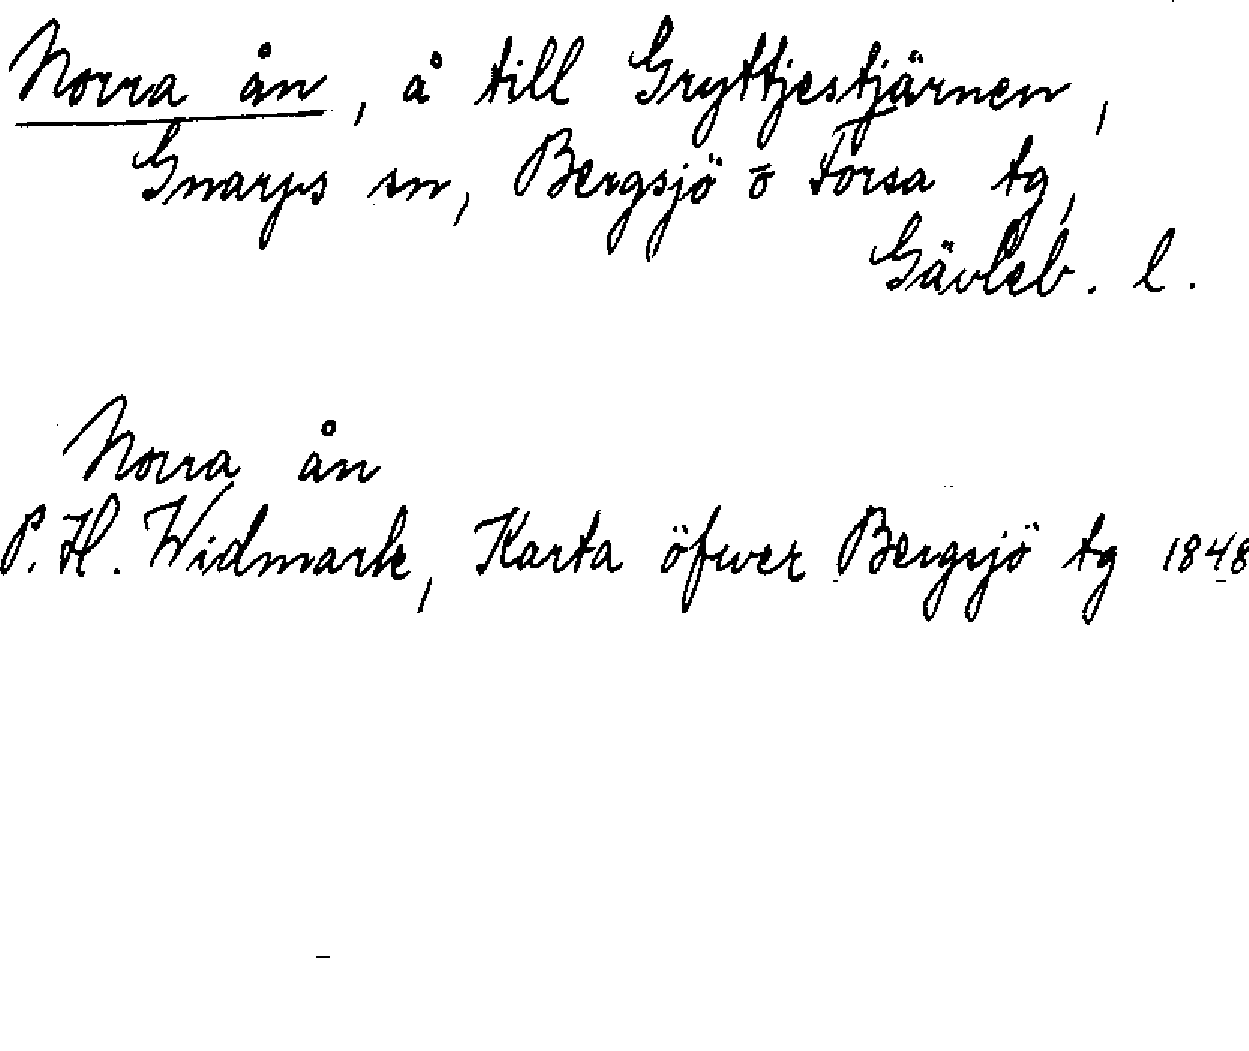 Norra ån, å till Gryttjestjärnen,
Gnarps sn, Bergsjö o Forsa tg,
Gävleb. l.
Norra ån
P. H. Widmark, Karta öfwer Bergsjö tg 1848